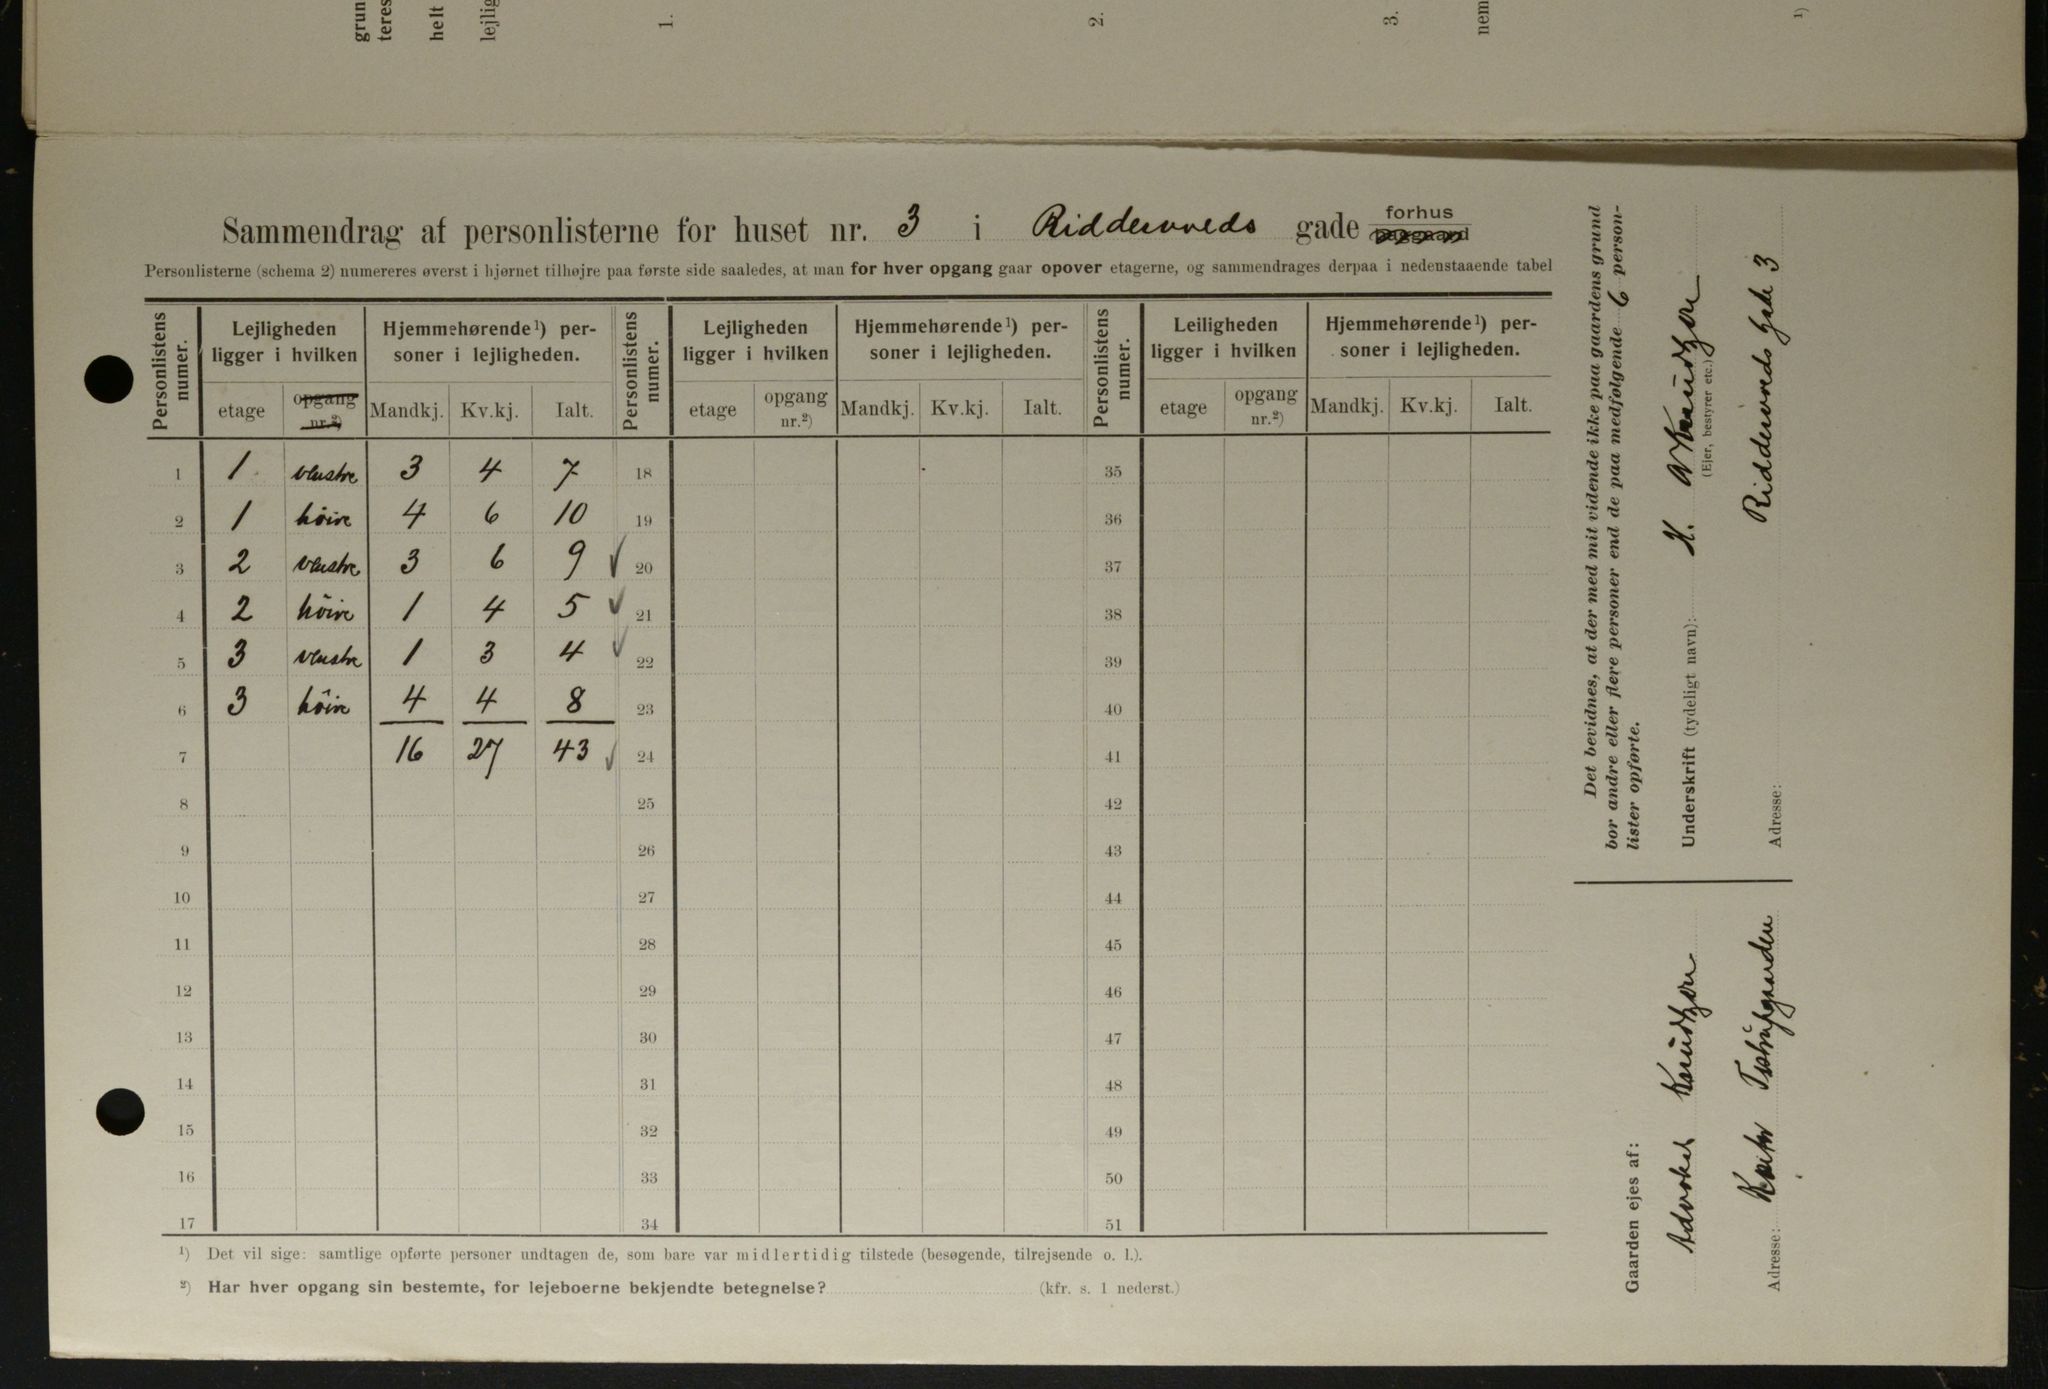 grun
teres
helt
lejlig
1.
2.
3.
nem
1)
Sammendrag af personlisterne for huset nr. 3 i Riddervolds gade forhus
Personlisterne (schema 2) numereres øverst i hjørnet tilhøjre paa første side saaledes, at man for hver opgang gaar opover etagerne, og sammendrages derpaa i nedenstaaende tabel
Personlistens numer. Lejligheden ligger i hvilken Hjemmehørende¹) personer i lejligheden. Personlistens numer. Lejligheden ligger i hvilken Hjemmehørende¹) personer i lejligheden. Personlistens numer. Leiligheden ligger i hvilken Hjemmehørende¹) personer i lejligheden.
etage opgang nr.²) Mandkj. Kv.kj. Ialt. etage opgang nr.²) Mandkj. Kv.kj. Ialt. etage opgang nr.²) Mandkj. Kv.kj. Ialt.
1 1 venstre 3 4 7 18 35
2 1 höire 4 6 10 19 36
3 2 venstre 3 6 9 ✓ 20 37
4 2 höire 1 4 5 ✓ 21 38
5 3 venstre 1 3 4 ✓ 22 39
6 3 höire 4 4 8 23 40
7 16 27 43 ✓ 24 41
8 25 42
9 26 43
10 27 44
11 28 45
12 29 46
13 30 47
14 31 48
15 32 49
16 33 50
17 34 51
¹) Det vil sige: samtlige opførte personer undtagen de, som bare var midlertidig tilstede (besøgende, tilrejsende o. l.).
²) Har hver opgang sin bestemte, for lejeboerne bekjendte betegnelse? (kfr. s. 1 nederst.)
Det bevidnes, at der med mit vidende ikke paa gaardens grund
bor andre eller flere personer end de paa medfølgende 6 person-
lister opførte.
Underskrift (tydeligt navn): H. Knudtzon
(Ejer, bestyrer etc.)
Adresse: Riddervolds gade 3
Gaarden ejes af:
Advokat Knudtzon
Adresse: Tostrupgaarden